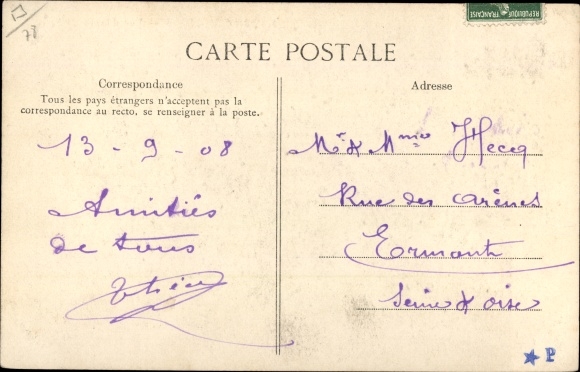 78
RÉPUBLIQUE FRANÇAISE
CARTE POSTALE
Correspondance
Tous les pays étrangers n'acceptent pas la
correspondance au recto, se renseigner à la poste.
13 - 9 - 08
Amitiés
de tous
Adresse
Mr & Mme Hecq
Rue des arènes
Ermont
Seine & oise
P